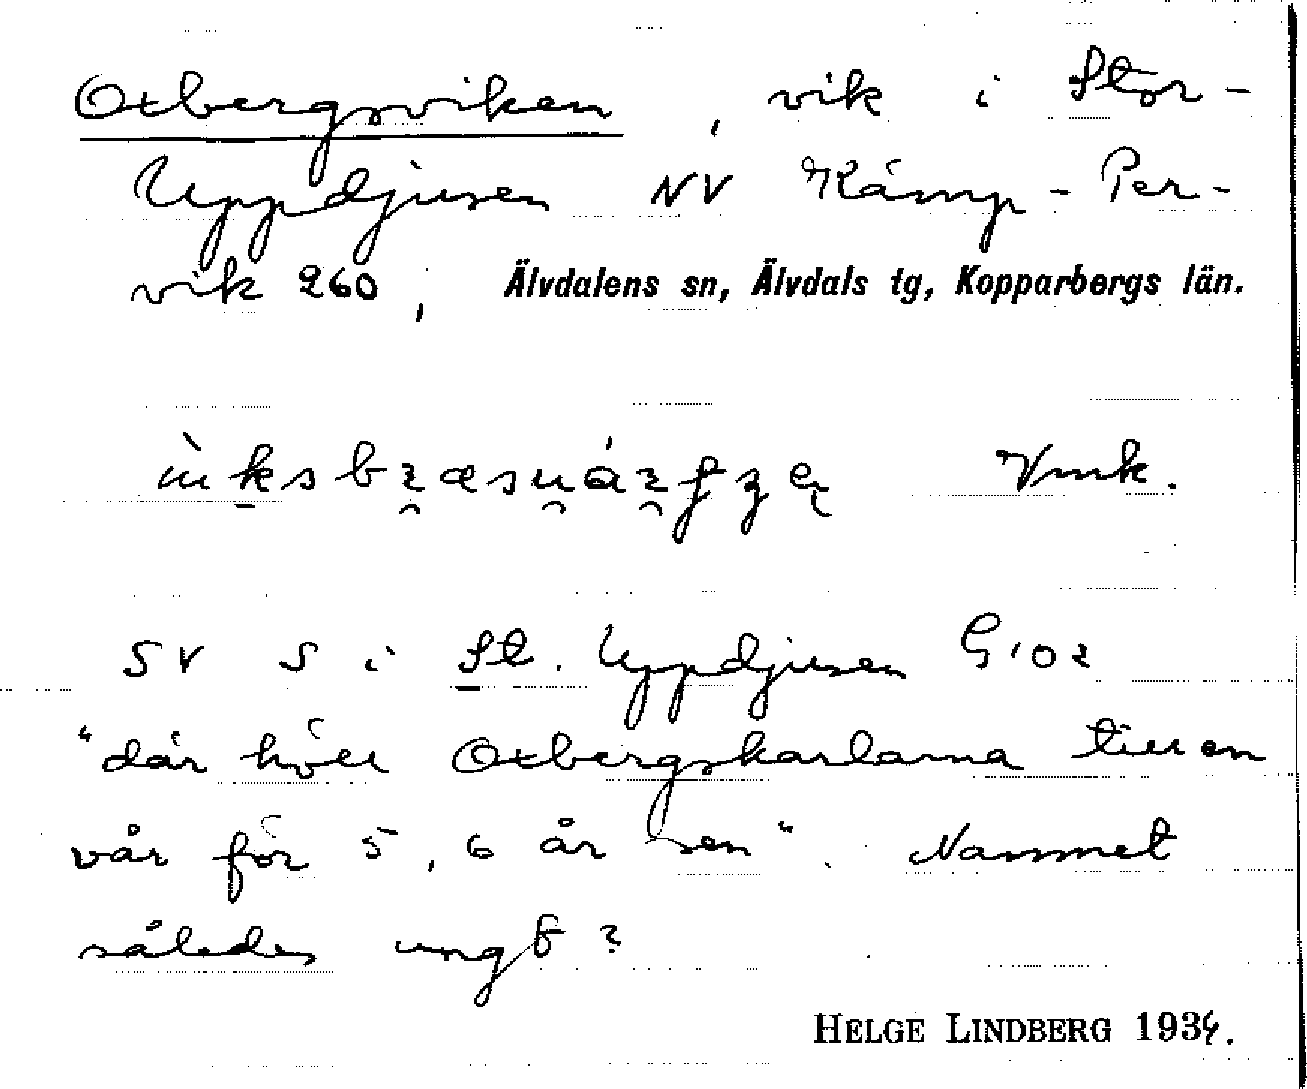 Oxbergsviken, vik i Stor-
Uppdjusen NV Kämp-Per-
vik 260, Älvdalens sn, Älvdals tg, Kopparbergs län.
Vmk.
SV S i St. Uppdjusen G 102
"där höll Oxbergskarlarna till en
vår för 5, 6 år sen". Namnet
således ungt?
HELGE LINDBERG 1934.